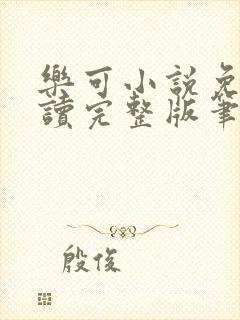 樂可小說免
讀完整版筆
殷俊